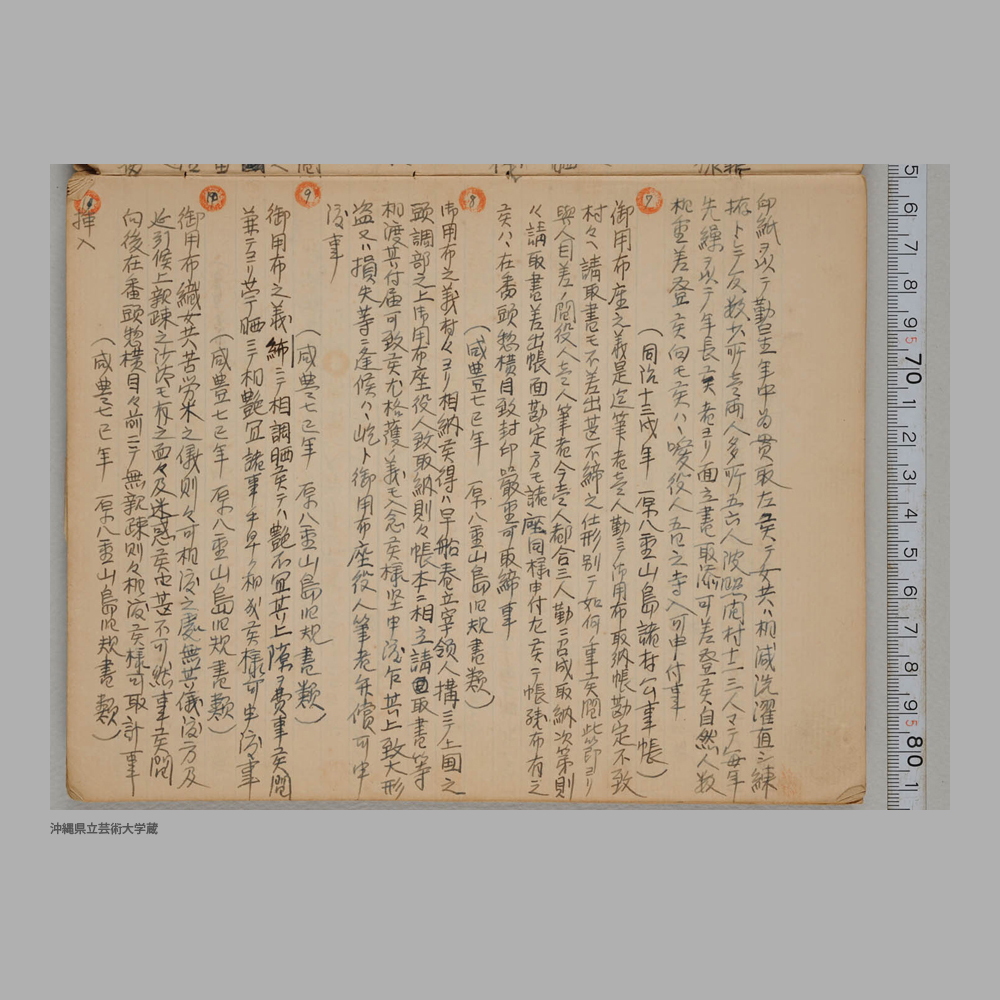 印紙ヲ以テ勤星年中為貫取左候テ女共ハ相減洗濯直シ練
拵トシテ反数少所壱両人多所五六人波照間村十二三人マテ毎年
先繰ヲ以テ年長候者ヨリ面立書取添可差登候自然人数
相重差登候向モ候ハヽ噯役人五日之寺入可申付事
(同治十三戌年 原八重山島諸村公事帳)
7
御用布座之義是迄筆者壱人勤ニテ御用布取納帳勘定不致
村々ヘ請取書モ不差出甚不締之仕形別テ如何ノ事候間此節ヨリ
與人目差ノ間役人壱人筆者今壱人都合三人勤ニ召成取納次第則
々請取書差出帳面勘定方モ諸座同様申付尤候テ帳残布有之
候ハヽ在番頭惣横目致封印置厳重可取締事
(咸豊七巳年 原八重山島旧規書類)
8
御用布之義村々ヨリ相納候得ハ早船春立宰領人搆ニテ上国之
頭調部之上御用布座役人致取納則々帳本ニ相立請取書等
相渡其付届可致候尤格護ノ義モ入念候様堅申渡乍其上致大形
盗又ハ損失等ニ逢候ハヽ屹ト御用布座役人筆者弁償可申
渡事
(咸豊七巳年 原八重山島旧規書類)
9
御用布之義 ニテ相調晒候テハ艶不宜其上隙ヲ費事候間
兼テヨリ苧晒ニテ相艶宜諸事手早ク相成候様可申渡事
(咸豊七巳年 原八重山島旧規書類)
10
御用布織女共苦労米之儀則々可相渡之処無其儀渡方及
延引候上親疎之沙汰モ有之面々及迷惑候由甚不可然事候間
向後在番頭惣横目々前ニテ無親疎則々相渡候様可取計事
(咸豊七巳年 原八重山島旧規書類)
挿入
沖縄県立芸術大学蔵